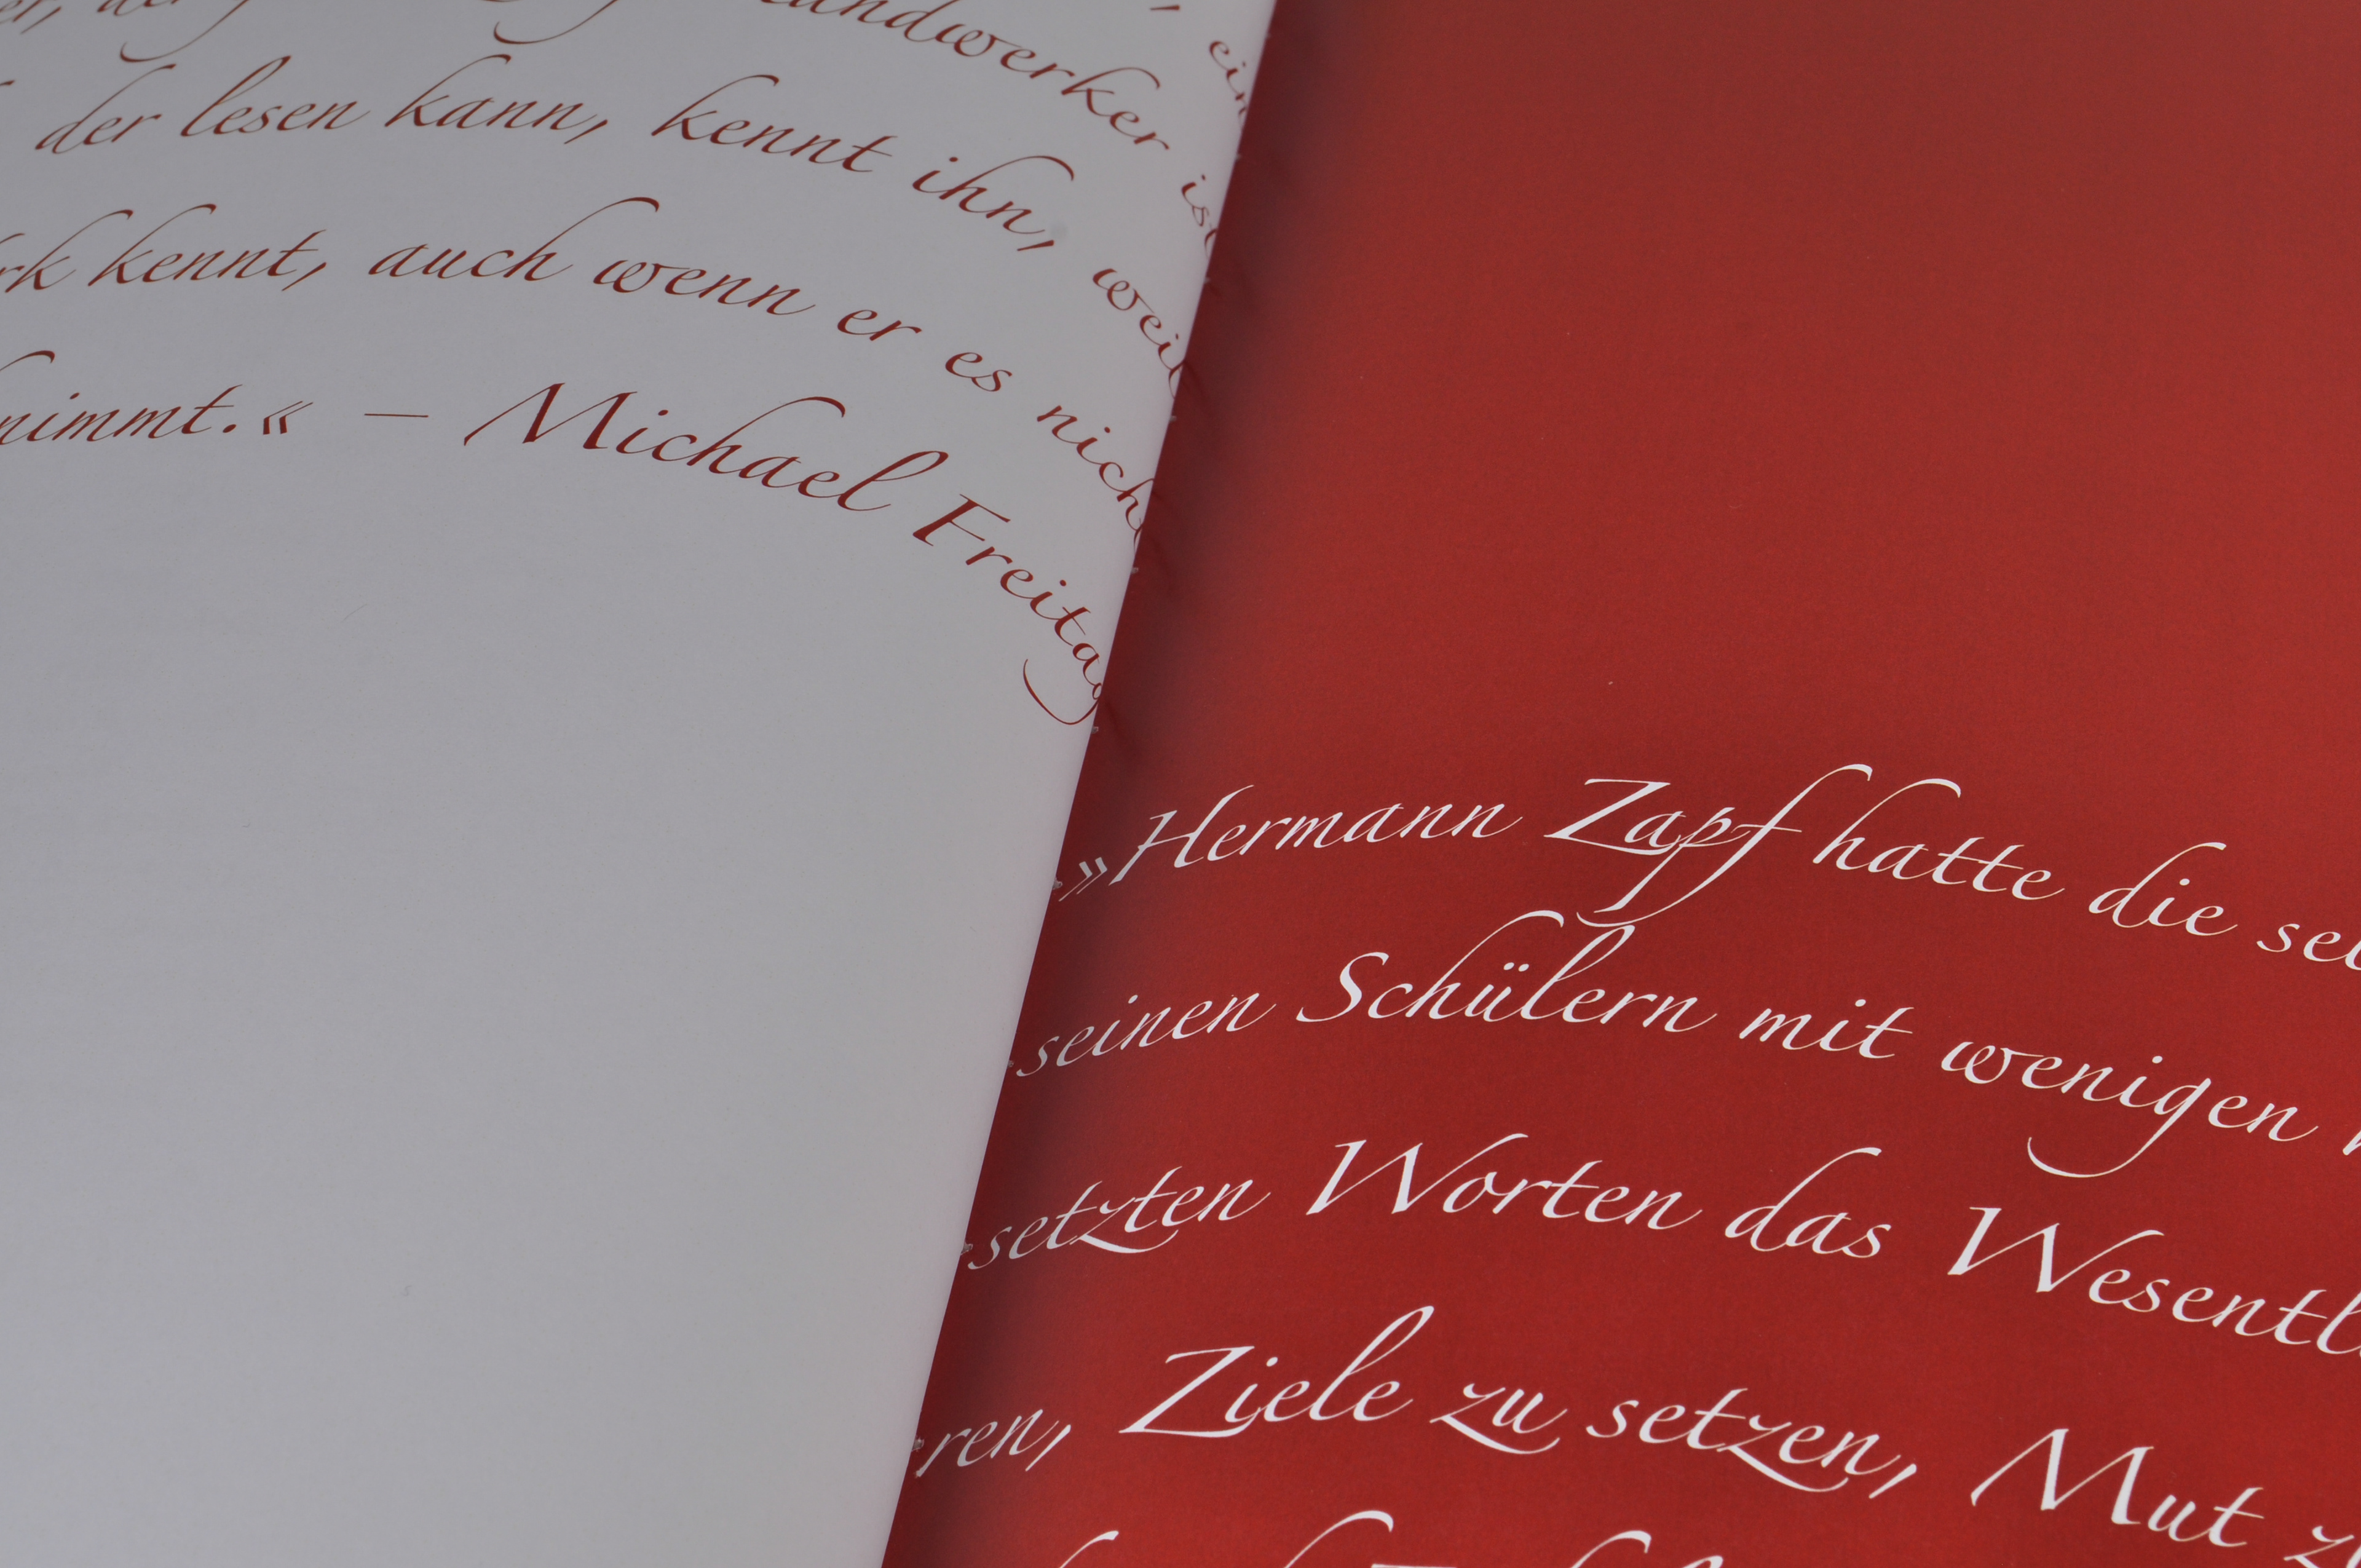 der lesen kann, kennt ihn, weil
kennt, auch wenn er es nicht
nimmt.« — Michael Freitag
»Hermann Zapf hatte die
seinen Schülern mit wenigen
setzten Worten das
Ziele zu setzen, Mut